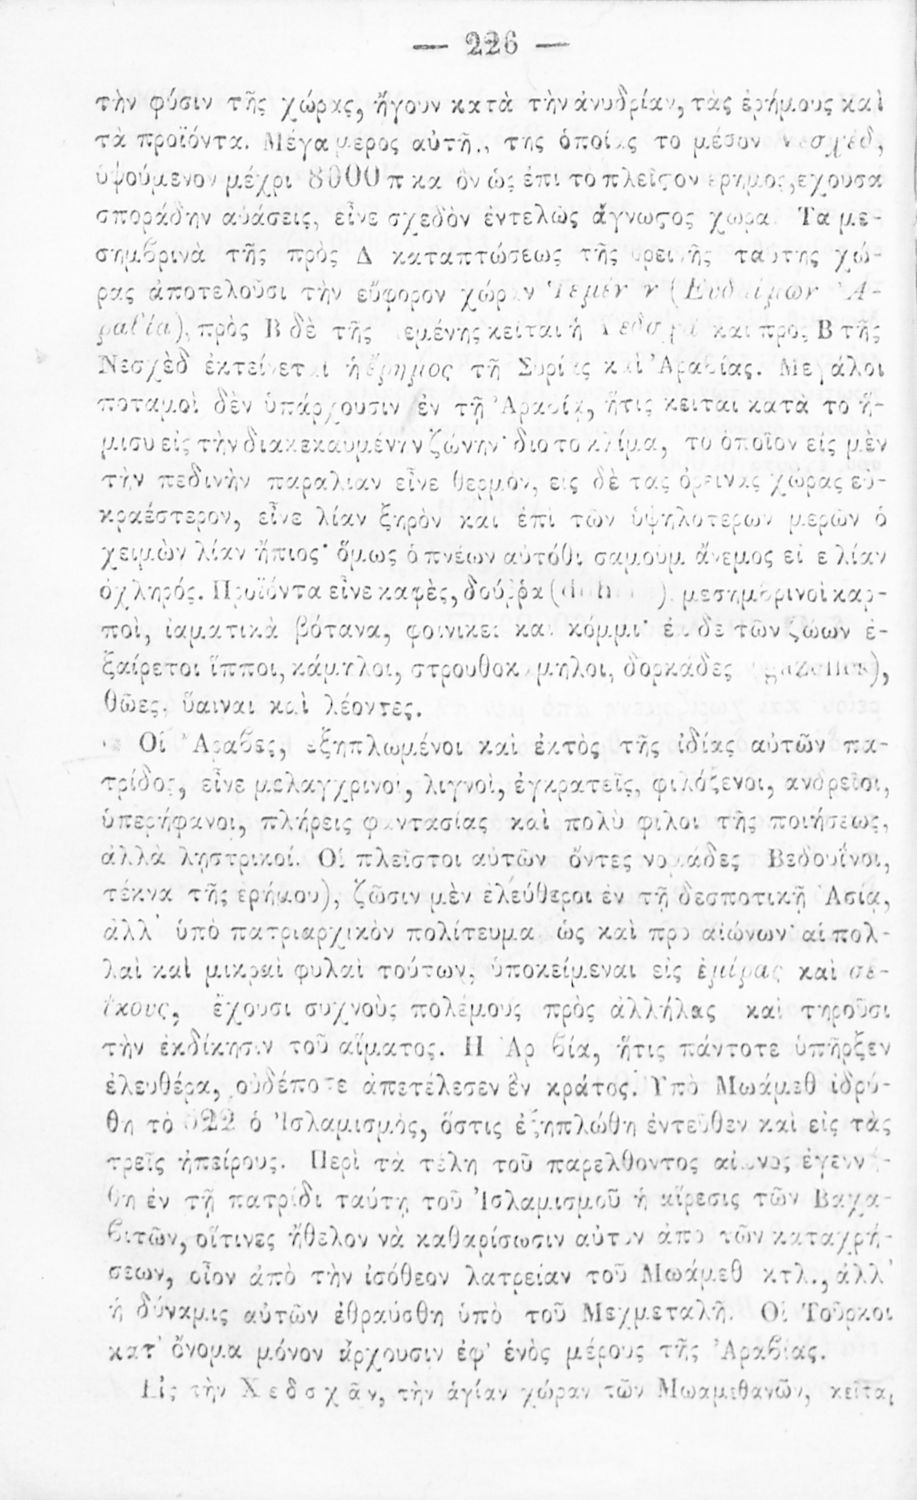 — 226 —
τὴν φύσιν τῆς χώρας, ἤγουν κατὰ τὴν ἀνυδρίαν, τὰς ἐρήμους καὶ
τὰ προϊόντα. Μέγα μέρος αὐτῆς, τῆς ὁποίας τὸ μέσον Νεσχὲδ,
ὑψούμενον μέχρι 8000 π κα ὂν ὡς ἐπὶ τὸ πλεῖςον ἔρημος, ἔχουσα
σποράδην αὐάσεις, εἶνε σχεδὸν ἐντελῶς ἄγνωςος χώρα. Τὰ με-
σημβρινὰ τῆς πρὸς Δ καταπτώσεως τῆς ὀρεινῆς ταύτης χώ-
ρας ἀποτελοῦσι τὴν εὔφορον χώραν Ἰεμένην (Εὐδαίμων Ἀ-
ραβία), πρὸς Β δὲ τῆς Ἰεμένης κεῖται ἡ καὶ πρὸς Β τῆς
Νεσχὲδ ἐκτείνεται ἡ ἔρημος τῆς Συρίας καὶ Ἀραβίας. Μεγάλοι
ποταμοὶ δὲν ὑπάρχουσιν ἐν τῇ Ἀραβίᾳ, ἥτις κεῖται κατὰ τὸ ἥ-
μισυ εἰς τὴν διακεκαυμένην ζώνην· διὸ τὸ κλίμα, τὸ ὁποῖον εἰς μὲν
τὴν πεδινὴν παραλίαν εἶνε θερμὸν, εἰς δὲ τὰς ὀρεινὰς χώρας εὐ-
κραέστερον, εἶνε λίαν ξηρὸν καὶ ἐπὶ τῶν ὑψηλοτέρων μερῶν ὁ
χειμὼν λίαν ἤπιος· ὅμως ὁ πνέων αὐτόθι σαμοὺμ ἄνεμος εἶνε λίαν
ὀχληρός. Προϊόντα εἶνε καφὲς, δούρρα ( ), μεσημβρινοὶ καρ-
ποὶ, ἰαματικὰ βότανα, φοίνικες καὶ κόμμι· ἐκ δὲ τῶν ζώων ἐ-
ξαίρετοι ἵπποι, κάμηλοι, στρουθοκάμηλοι, δορκάδες (gazellen),
θῶες, ὕαιναι καὶ λέοντες.
Οἱ Ἄραβες, ἐξηπλωμένοι καὶ ἐκτὸς τῆς ἰδίας αὐτῶν πα-
τρίδος, εἶνε μελαγχρινοὶ, λιγνοὶ, ἐγκρατεῖς, φιλόξενοι, ἀνδρεῖοι,
ὑπερήφανοι, πλήρεις φαντασίας καὶ πολὺ φίλοι τῆς ποιήσεως,
ἀλλὰ λῃστρικοί. Οἱ πλεῖστοι αὐτῶν ὄντες νομάδες Βεδουΐνοι,
τέκνα τῆς ἐρήμου), ζῶσιν μὲν ἐλεύθεροι ἐν τῇ δεσποτικῇ Ἀσίᾳ,
ἀλλ' ὑπὸ πατριαρχικὸν πολίτευμα ὡς καὶ πρὸ αἰώνων· αἱ πολ-
λαὶ καὶ μικραὶ φυλαὶ τούτων, ὑποκείμεναι εἰς ἐμίρας καὶ σε-
ΐκους, ἔχουσι συχνοὺς πολέμους πρὸς ἀλλήλας καὶ τηροῦσι
τὴν ἐκδίκησιν τοῦ αἵματος. Ἡ Ἀραβία, ἥτις πάντοτε ὑπῆρξεν
ἐλευθέρα, οὐδέποτε ἀπετέλεσεν ἓν κράτος. Ὑπὸ Μωάμεθ ἱδρύ-
θη τὸ 622 ὁ Ἰσλαμισμὸς, ὅστις ἐξηπλώθη ἐντεῦθεν καὶ εἰς τὰς
τρεῖς ἠπείρους. Περὶ τὰ τέλη τοῦ παρελθόντος αἰῶνος ἐγεννή-
θη ἐν τῇ πατρίδι ταύτῃ τοῦ Ἰσλαμισμοῦ ἡ αἵρεσις τῶν Βαχα-
βιτῶν, οἵτινες ἤθελον νὰ καθαρίσωσιν αὐτὸν ἀπὸ τῶν καταχρή-
σεων, οἷον ἀπὸ τὴν ἰσόθεον λατρείαν τοῦ Μωάμεθ κτλ., ἀλλ'
ἡ δύναμις αὐτῶν ἐθραύσθη ὑπὸ τοῦ Μεχμεταλῆ. Οἱ Τοῦρκοι
κατ' ὄνομα μόνον ἄρχουσιν ἐφ' ἑνὸς μέρους τῆς Ἀραβίας.
Εἰς τὴν Χεδσχᾶν, τὴν ἁγίαν χώραν τῶν Μωαμεθανῶν, κεῖται